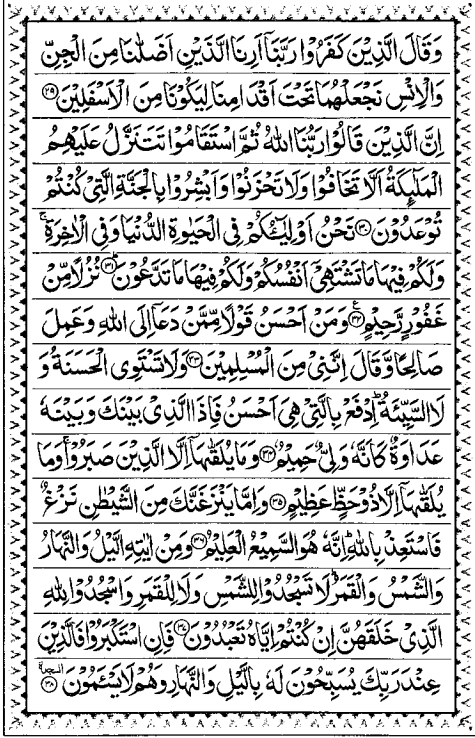 وَقَالَ الَّذِيْنَ كَفَرُوْا رَبَّنَاۤ اَرِنَا الَّذَيْنِ اَضَلّٰنَا مِنَ الْجِنِّ
وَالْاِنْسِ نَجْعَلْهُمَا تَحْتَ اَقْدَامِنَا لِيَكُوْنَا مِنَ الْاَسْفَلِيْنَ ﴿۲۹﴾
اِنَّ الَّذِيْنَ قَالُوْا رَبُّنَا اللّٰهُ ثُمَّ اسْتَقَامُوْا تَتَنَزَّلُ عَلَيْهِمُ
الْمَلٰٓئِكَةُ اَلَّا تَخَافُوْا وَلَا تَحْزَنُوْا وَاَبْشِرُوْا بِالْجَنَّةِ الَّتِيْ كُنْتُمْ
تُوْعَدُوْنَ ﴿۳۰﴾ نَحْنُ اَوْلِيٰٓؤُكُمْ فِي الْحَيٰوةِ الدُّنْيَا وَفِي الْاٰخِرَةِ ۚ
وَلَكُمْ فِيْهَا مَا تَشْتَهِيْۤ اَنْفُسُكُمْ وَلَكُمْ فِيْهَا مَا تَدَّعُوْنَ ؕ﴿۳۱﴾ نُزُلًا مِّنْ
غَفُوْرٍ رَّحِيْمٍ ﴿۳۲﴾ ع وَمَنْ اَحْسَنُ قَوْلًا مِّمَّنْ دَعَاۤ اِلَى اللّٰهِ وَعَمِلَ
صَالِحًا وَّقَالَ اِنَّنِيْ مِنَ الْمُسْلِمِيْنَ ﴿۳۳﴾ وَلَا تَسْتَوِي الْحَسَنَةُ وَ
لَا السَّيِّئَةُ ؕ اِدْفَعْ بِالَّتِيْ هِيَ اَحْسَنُ فَاِذَا الَّذِيْ بَيْنَكَ وَبَيْنَهٗ
عَدَاوَةٌ كَاَنَّهٗ وَلِيٌّ حَمِيْمٌ ﴿۳۴﴾ وَمَا يُلَقّٰىهَاۤ اِلَّا الَّذِيْنَ صَبَرُوْا ۚ وَمَا
يُلَقّٰىهَاۤ اِلَّا ذُوْ حَظٍّ عَظِيْمٍ ﴿۳۵﴾ وَاِمَّا يَنْزَغَنَّكَ مِنَ الشَّيْطٰنِ نَزْغٌ
فَاسْتَعِذْ بِاللّٰهِ ؕ اِنَّهٗ هُوَ السَّمِيْعُ الْعَلِيْمُ ﴿۳۶﴾ وَمِنْ اٰيٰتِهِ الَّيْلُ وَالنَّهَارُ
وَالشَّمْسُ وَالْقَمَرُ ؕ لَا تَسْجُدُوْا لِلشَّمْسِ وَلَا لِلْقَمَرِ وَاسْجُدُوْا لِلّٰهِ
الَّذِيْ خَلَقَهُنَّ اِنْ كُنْتُمْ اِيَّاهُ تَعْبُدُوْنَ ﴿۳۷﴾ فَاِنِ اسْتَكْبَرُوْا فَالَّذِيْنَ
عِنْدَ رَبِّكَ يُسَبِّحُوْنَ لَهٗ بِالَّيْلِ وَالنَّهَارِ وَهُمْ لَا يَسْـَٔمُوْنَ ﴿۳۸﴾ السجدة